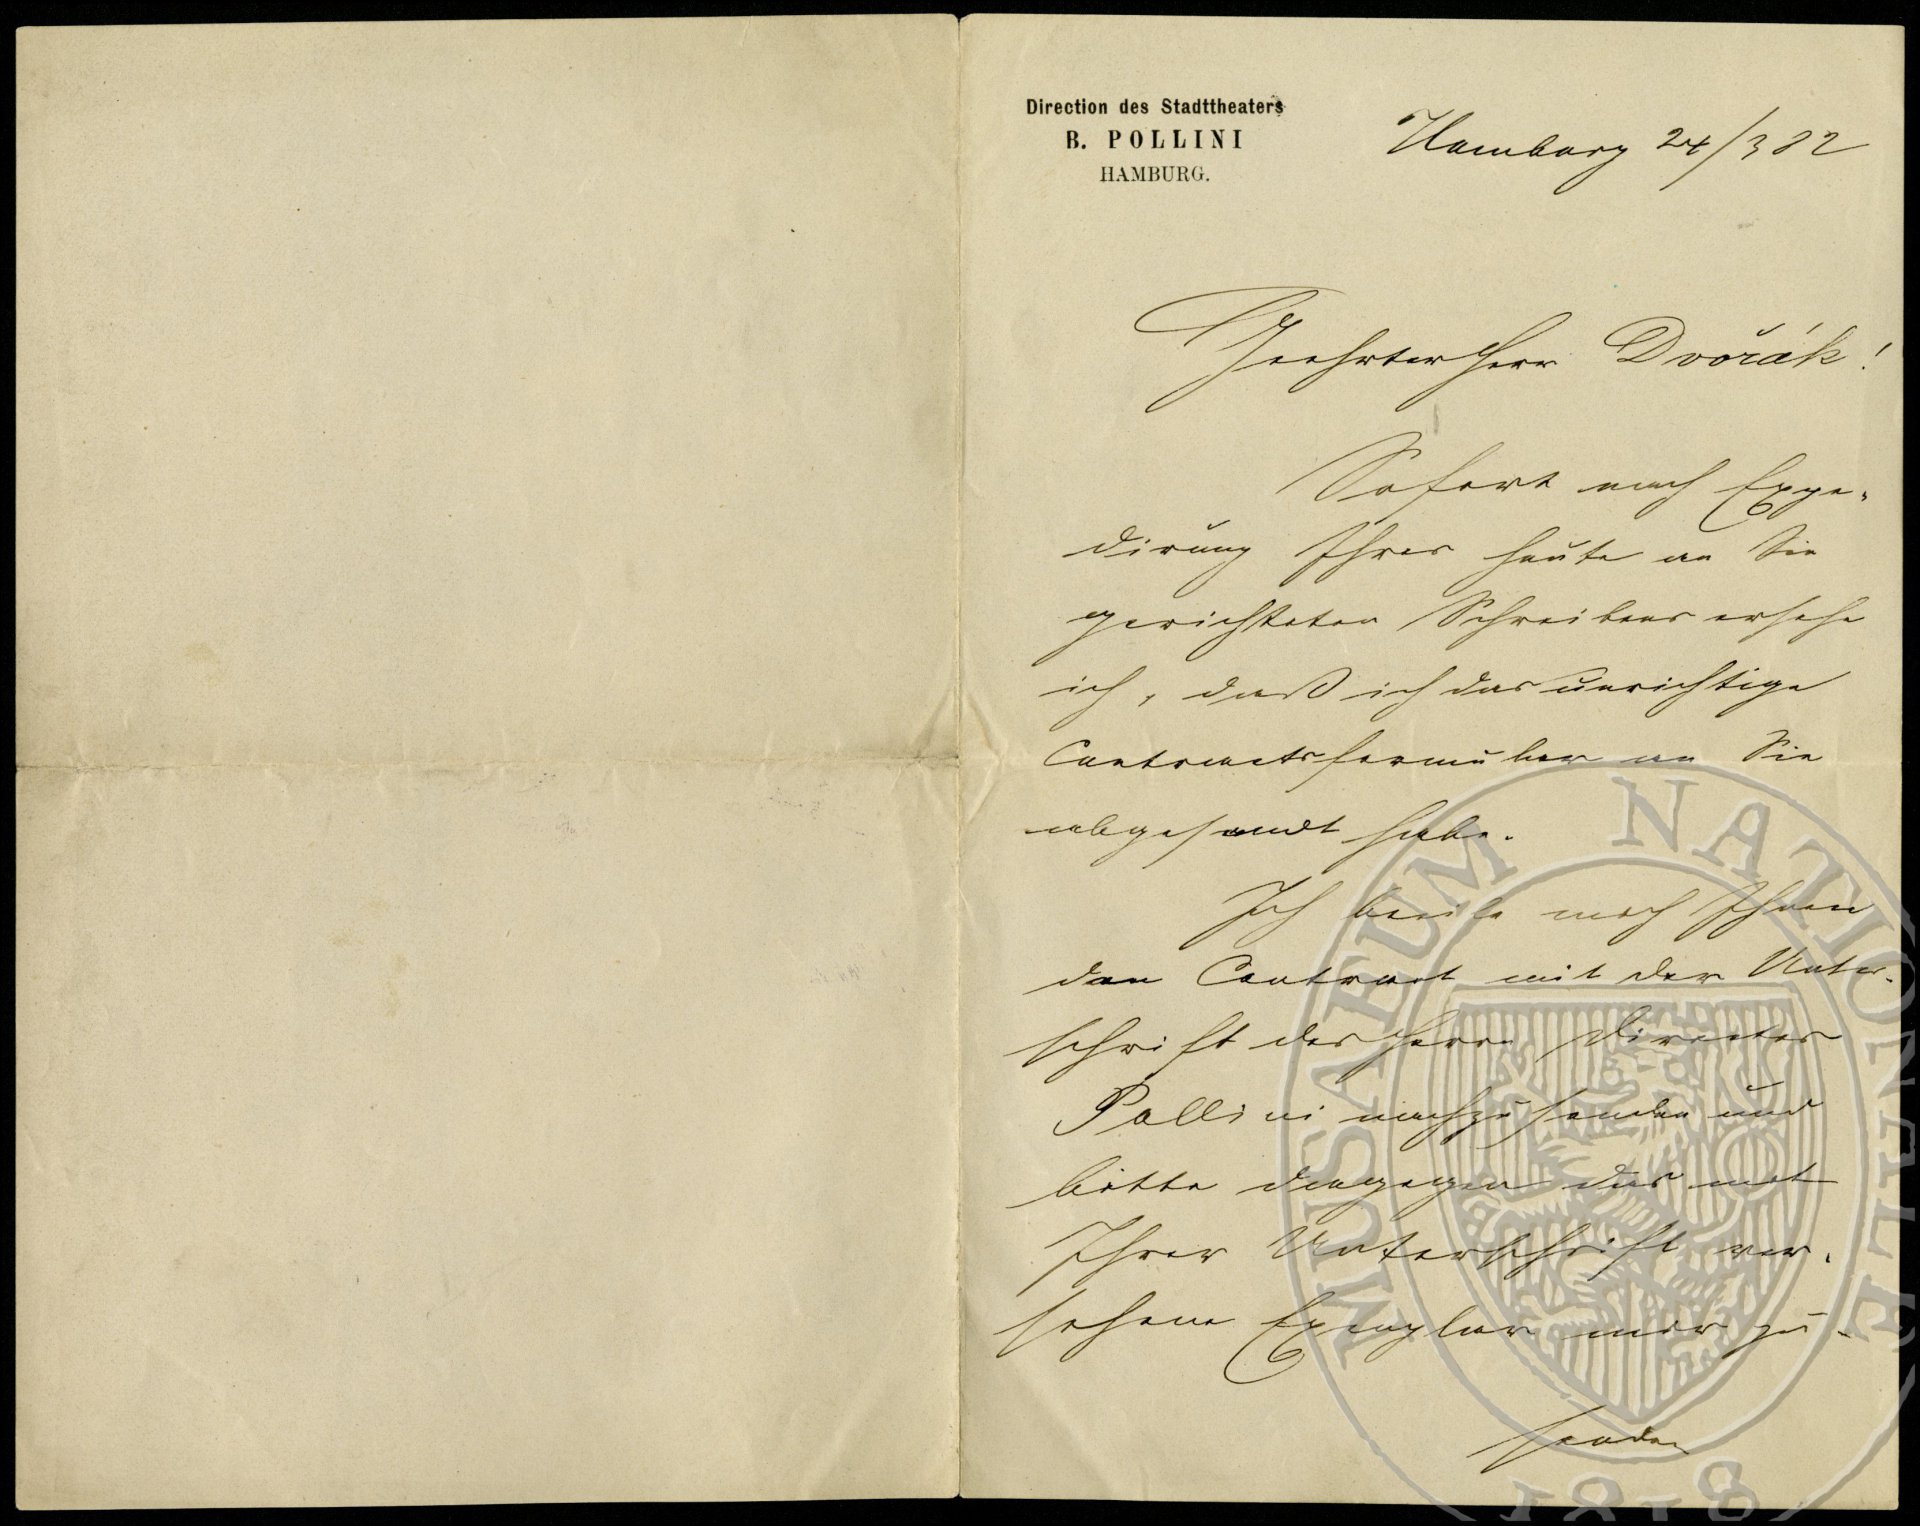 Direction des Stadttheaters
B. POLLINI
HAMBURG.
Hamburg 24/3 82
Geehrter Herr Dvořák!
Sofort nach Expe-
dirung Ihres heute an Sie
gerichteten Schreibens ersehe
ich, daß ich das unrichtige
Contractsformular an Sie
abgesandt habe.
Ich beeile mich Ihnen
den Contract mit der Unter-
schrift des Herrn Director
Pollini nachzusenden und
bitte dagegen das mit
Ihrer Unterschrift ver-
sehene Exemplar mir zu-
senden
MUSAEUM NATIONALE
1818